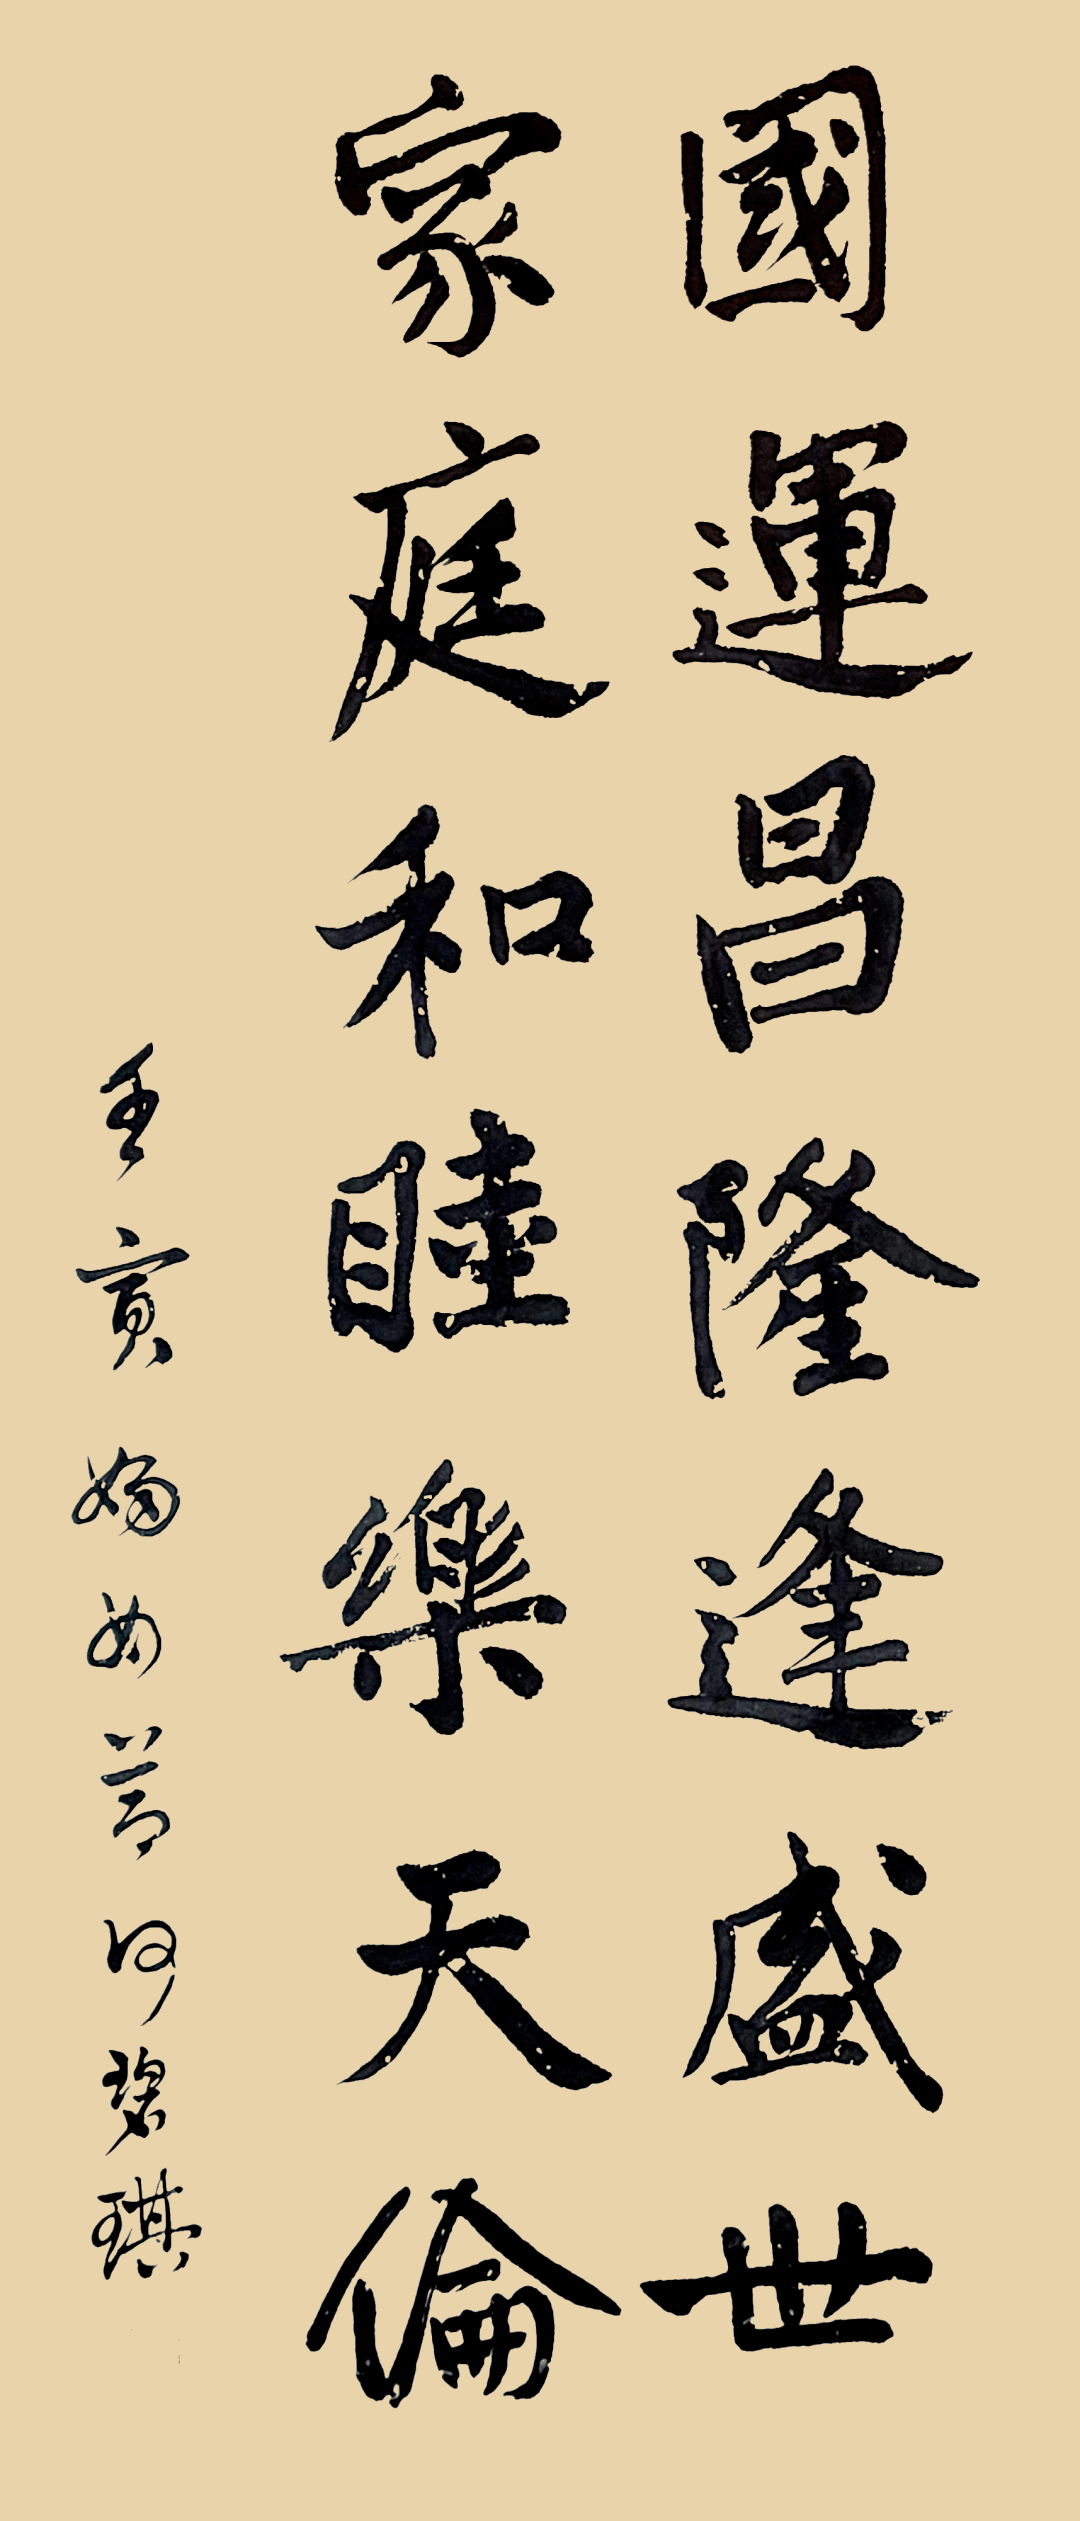 國運昌隆逢盛世
家庭和睦樂天倫
壬寅 何碧琪